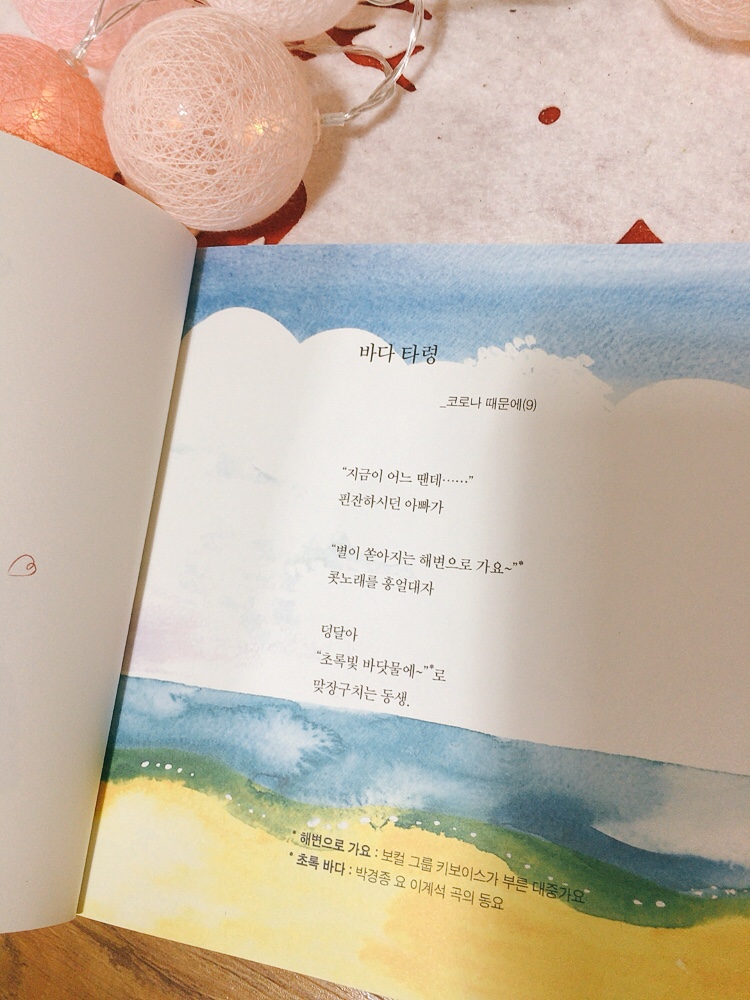 바다 타령
_코로나 때문에(9)
“지금이 어느 땐데……”
핀잔하시던 아빠가
“별이 쏟아지는 해변으로 가요~”*
콧노래를 흥얼대자
덩달아
“초록빛 바닷물에~”*로
맞장구치는 동생.
* 해변으로 가요 : 보컬 그룹 키보이스가 부른 대중가요
* 초록 바다 : 박경종 요 이계석 곡의 동요